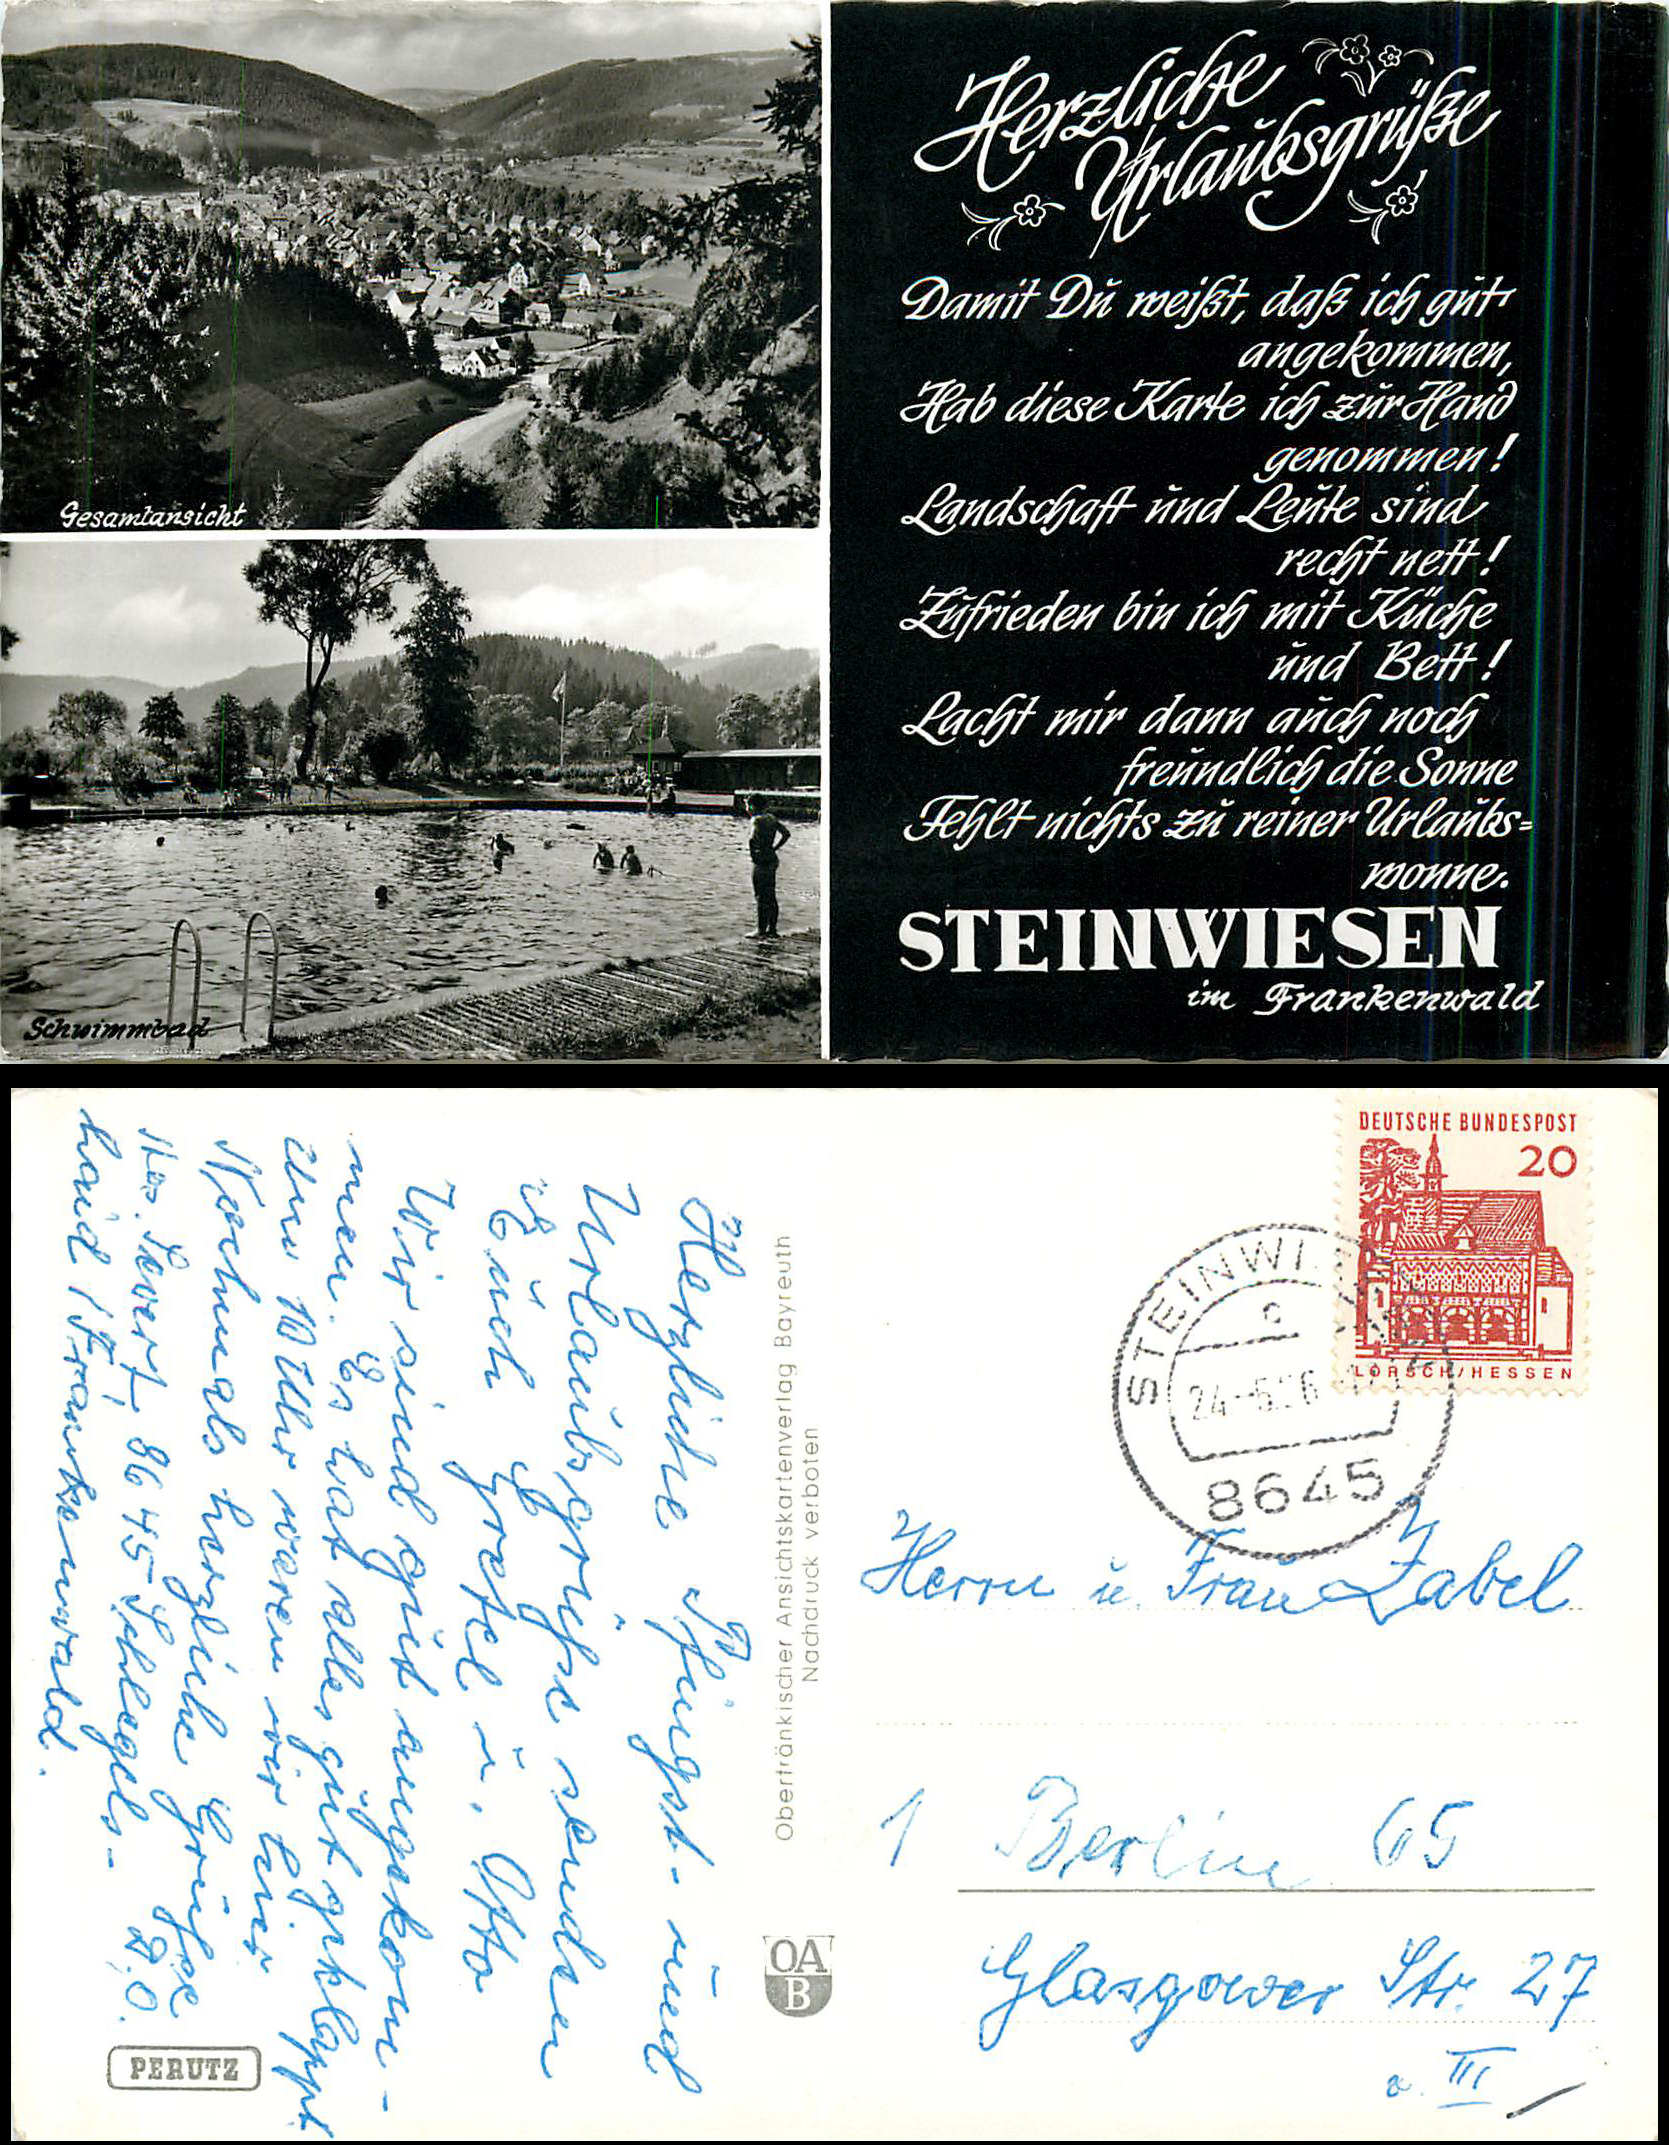 Gesamtansicht
Schwimmbad
Herzliche
Urlaubsgrüße
Damit Du weißt, daß ich gut
angekommen,
Hab diese Karte ich zur Hand
genommen!
Landschaft und Leute sind
recht nett!
Zufrieden bin ich mit Küche
und Bett!
Lacht mir dann auch noch
freundlich die Sonne
Fehlt nichts zu reiner Urlaubs=
wonne.
STEINWIESEN
im Frankenwald
Herzliche Pfingst- und
Urlaubsgrüße senden
Euch Gretel u. Otto
Wir sind gut angekom-
men. Es hat alles gut geklappt
Um 10 Uhr waren wir hier
Nochmals herzliche Grüße
8645 Schlegels-
haid / Frankenwald.
Oberfränkischer Ansichtskartenverlag Bayreuth
Nachdruck verboten
OA
B
PERUTZ
DEUTSCHE BUNDESPOST
20
LORSCH/HESSEN
STEINWI
c
24.-5.
8645
Herrn u. Frau Zabel
1 Berlin 65
Glasgower Str. 27
III